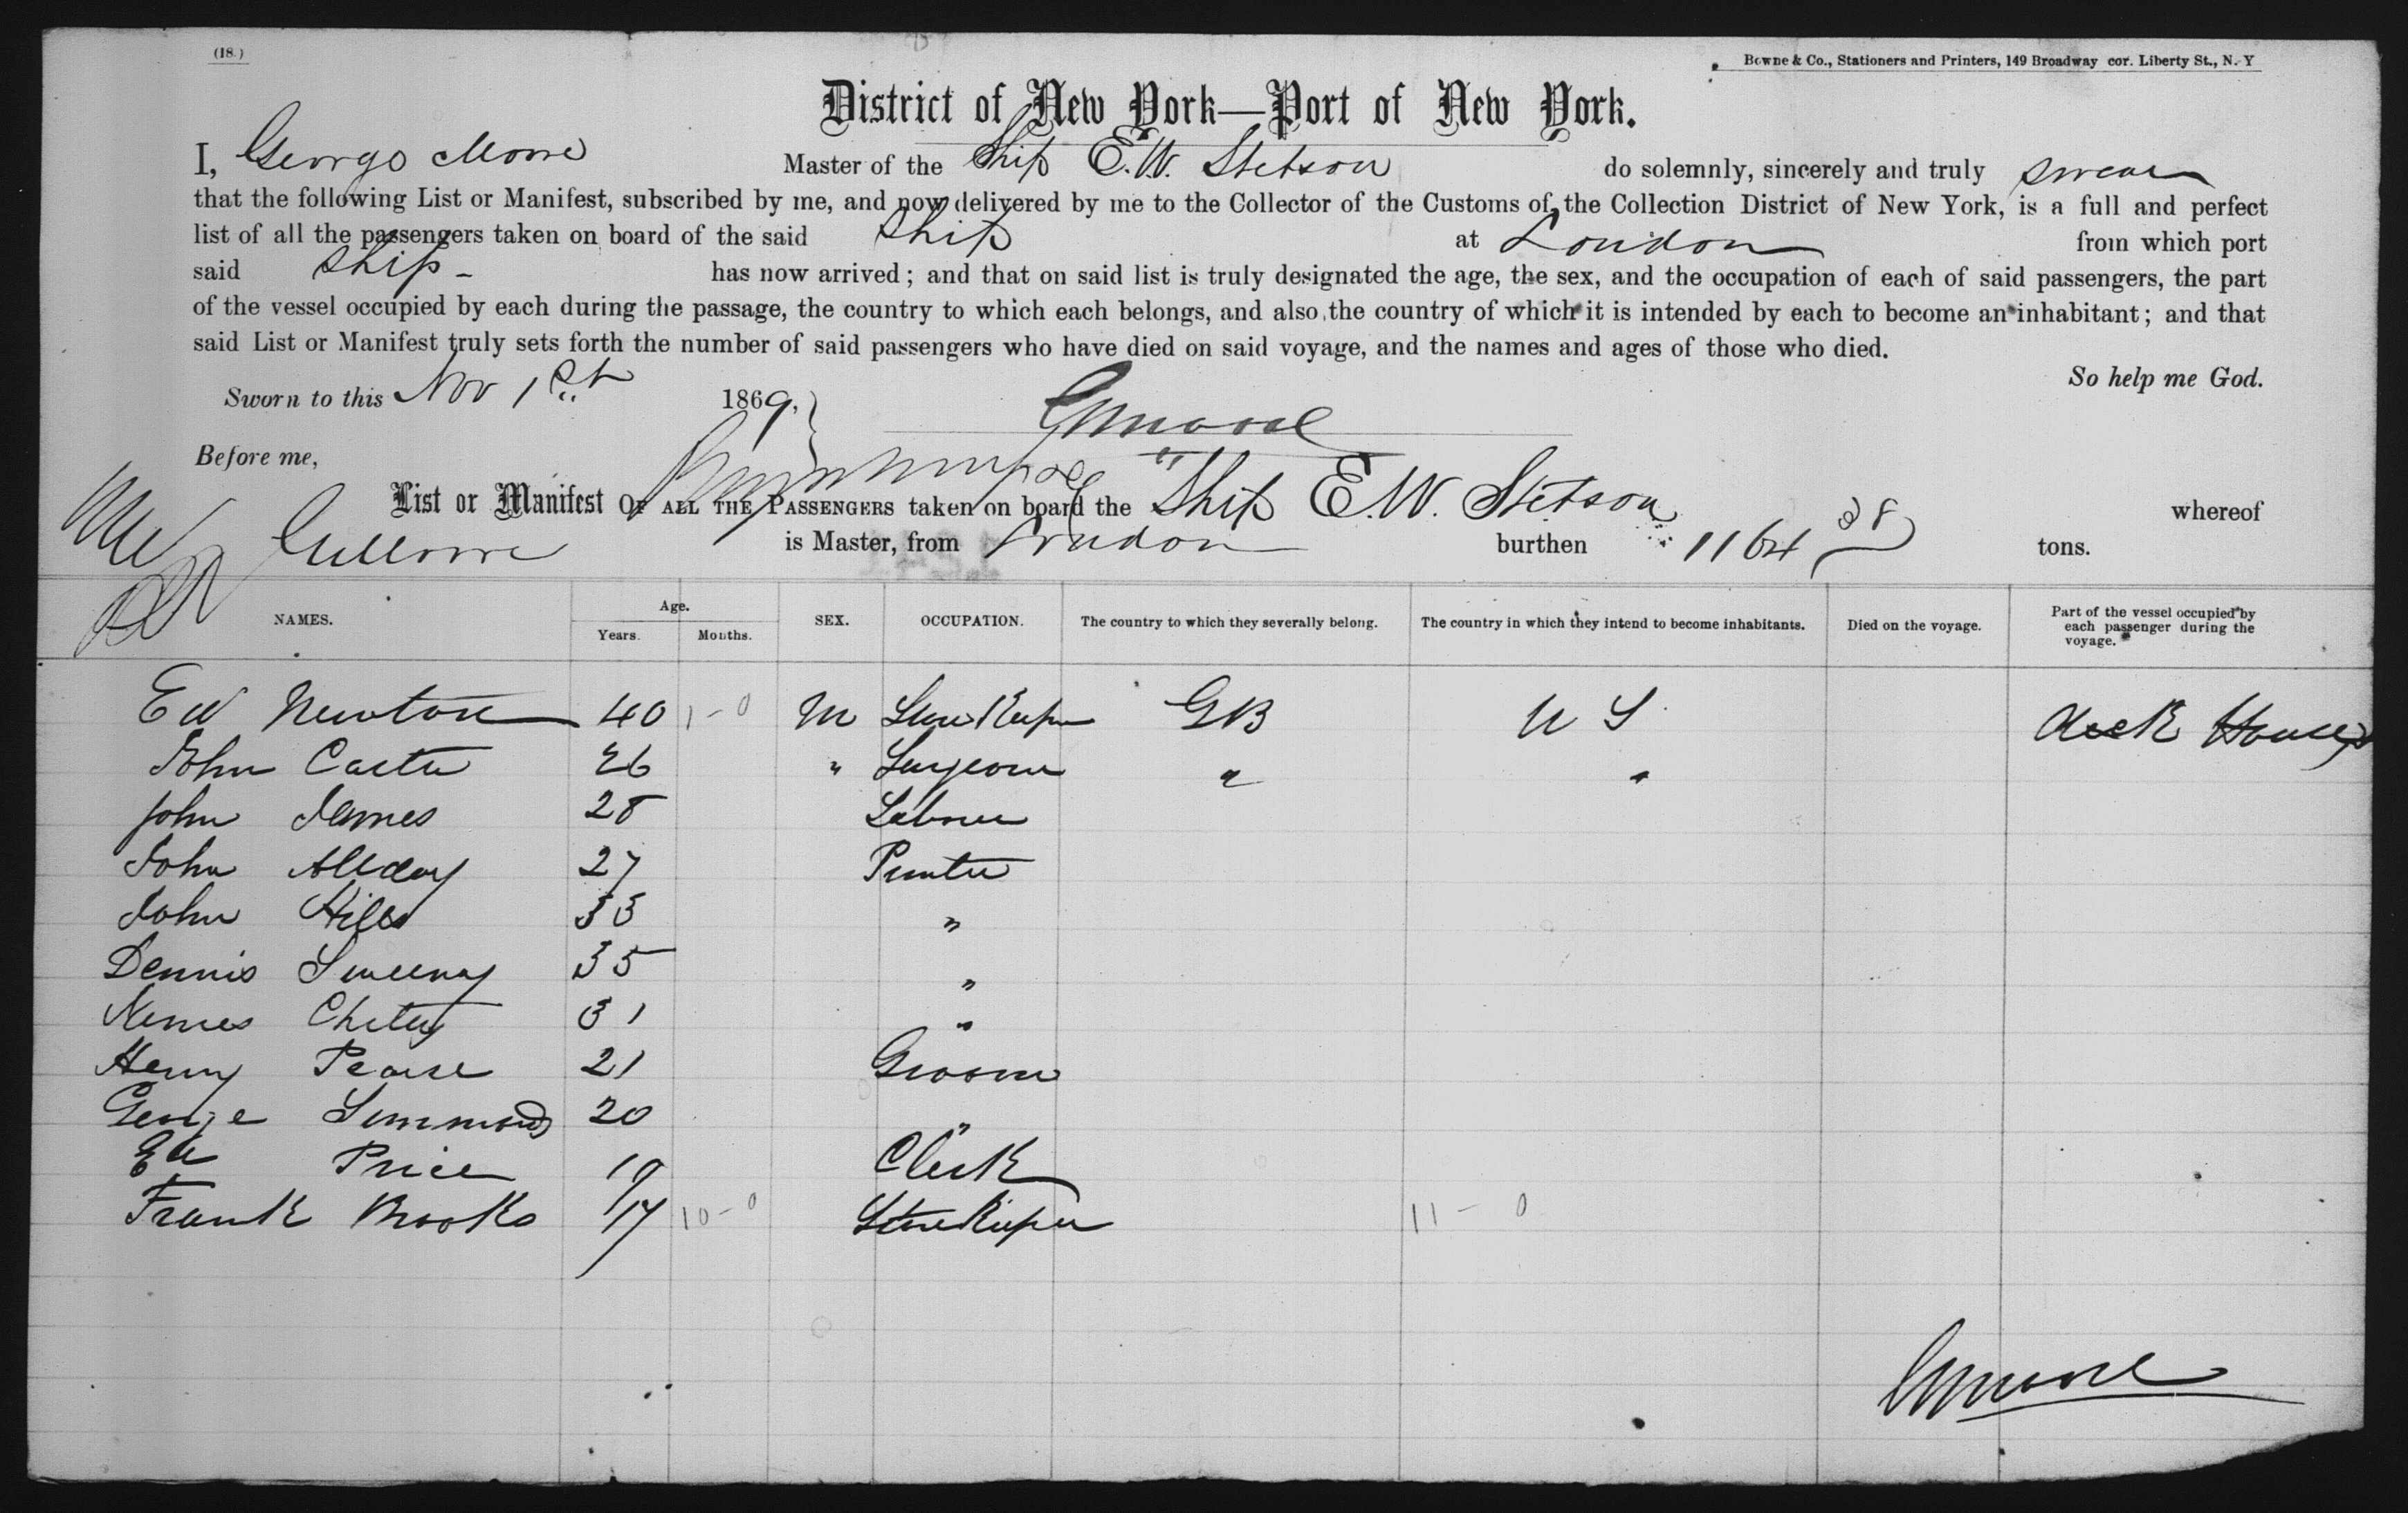 (18.)
Bowne & Co., Stationers and Printers, 149 Broadway cor. Liberty St., N. Y
District of New York—Port of New York.
I, George Moore Master of the Ship E.W. Stetson do solemnly, sincerely and truly swear
that the following List or Manifest, subscribed by me, and now delivered by me to the Collector of the Customs of the Collection District of New York, is a full and perfect
list of all the passengers taken on board of the said Ship at London from which port
said Ship - has now arrived; and that on said list is truly designated the age, the sex, and the occupation of each of said passengers, the part
of the vessel occupied by each during the passage, the country to which each belongs, and also the country of which it is intended by each to become an inhabitant; and that
said List or Manifest truly sets forth the number of said passengers who have died on said voyage, and the names and ages of those who died.
So help me God.
Sworn to this Nov 1st 1869, GMoore
Before me,
List or Manifest OF ALL THE PASSENGERS taken on board the Ship E.W. Stetson whereof
GMoore is Master, from London burthen 1164 28 tons.
NAMES. Age. Years. Months. SEX. OCCUPATION. The country to which they severally belong. The country in which they intend to become inhabitants. Died on the voyage. Part of the vessel occupied by each passenger during the voyage.
Ed Newton 40 1-0 M GB U S deck House
John Carter 26 " Surgeon " "
John James 28 Laborer
John Allday 27 Printer
John Hills 33 "
Dennis Sweeney 35 "
James 31 "
Henry Pearse 21 Groom
George Simmonds 20 "
Ed Price 19 Clerk
Frank Brooks 17 10-0 Storekeeper 11-0
GMoore